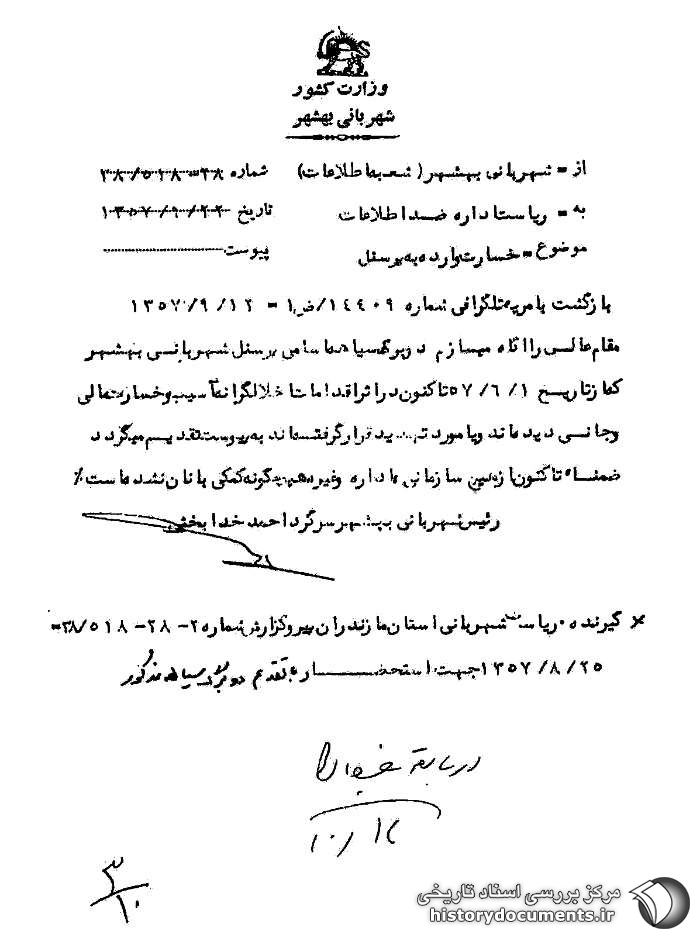 وزارت کشور
شهربانی بهشهر
از = شهربانی بهشهر ( شعبه اطلاعات ) شماره ۲۸-۳۸/۵۱۸
به = ریاست اداره ضد اطلاعات تاریخ ۱۳۵۷/۹/۲۲
موضوع = خسارت وارده به پرسنل پیوست
بازگشت بامریه تلگرافی شماره ۱۴۴۰۹/ض۱ = ۱۳۵۷/۹/۱۲
مقام عالی را آگاه میسازم دوبرگ سیاهه اسامی پرسنل شهربانی بهشهر
که از تاریخ ۵۷/۶/۱ تاکنون در اثر اقدامات اخلالگرانه آسیب و خسارت مالی
و جانی دیده اند و یا مورد تهدید قرار گرفته اند به پیوست تقدیم میگردد
ضمناً تاکنون از طرف سازمانی یا اداره وغیره هیچگونه کمکی بانان نشده است ٪
رئیس شهربانی بهشهر سرگرد احمد خدابخش
× گیرنده . ریاست شهربانی استان مازندران پیرو گزارش شماره ۲-۲۸-۳۸/۵۱۸=
۱۳۵۷/۸/۲۵ جهت استحضار با تقدیم دو برگ سیاهه مذکور
در سابقه
۱۰/۱۴
۳/۱۰
مرکز بررسی اسناد تاریخی
historydocuments.ir